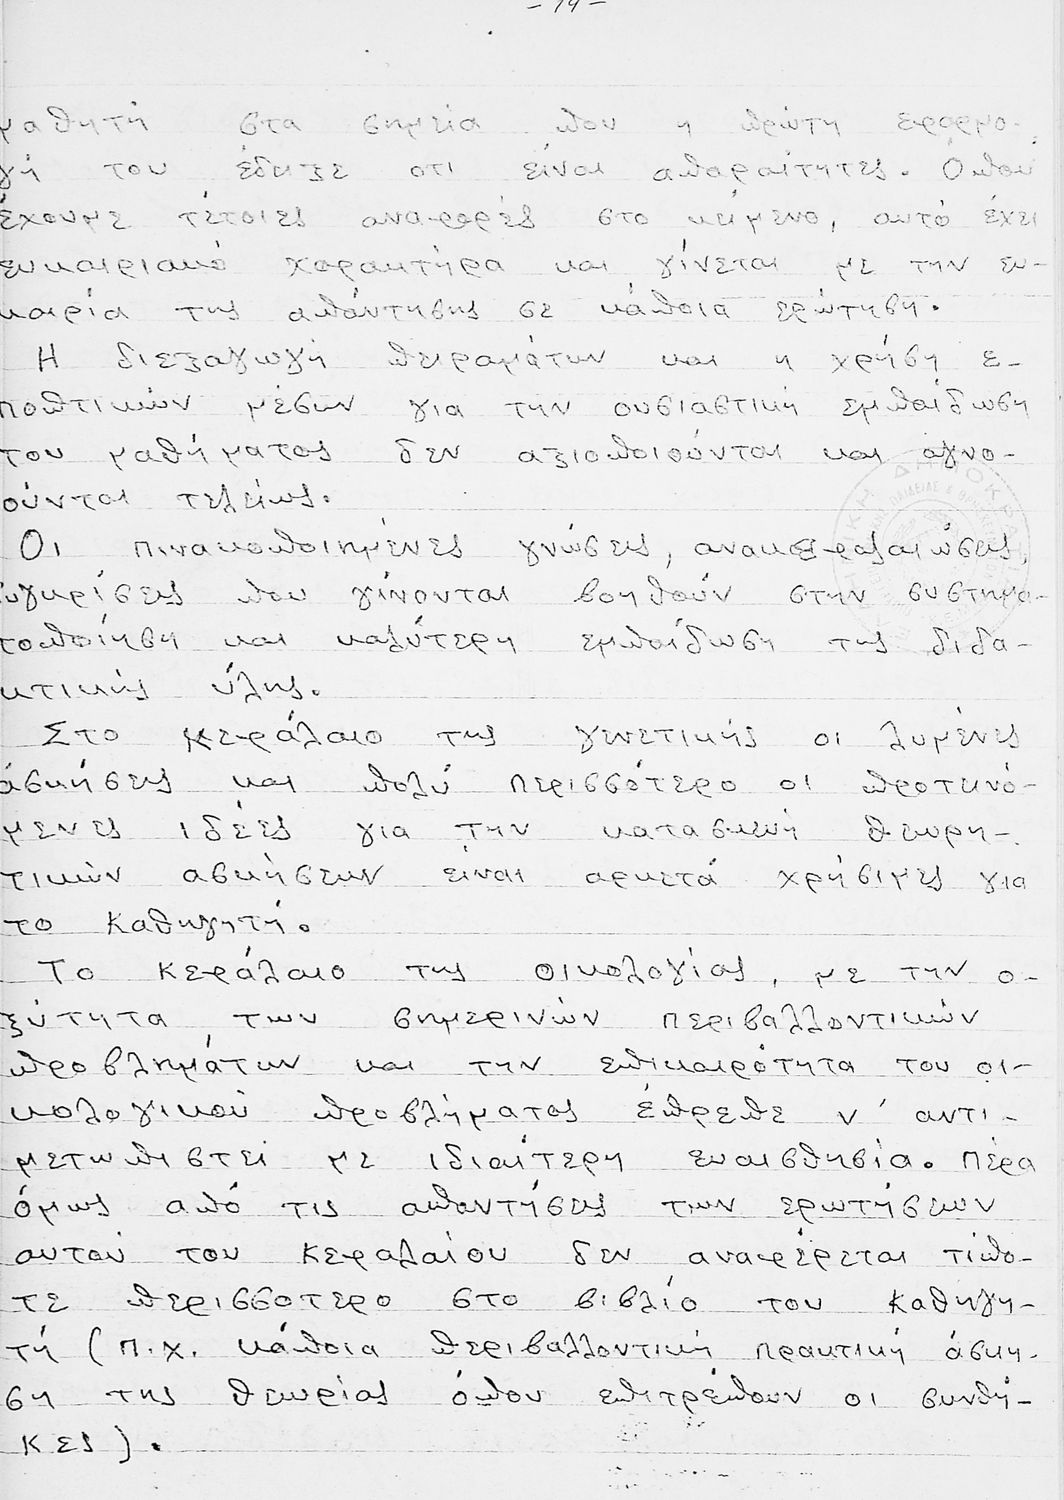 - 14 -
μαθητή στα σημεία που η πρώτη εφαρμο-
γή του έδειξε οτι είναι απαραίτητες. Οπου
έχουμε τέτοιες αναφορές στο κείμενο, αυτό έχει
ευκαιριακό χαρακτήρα και γίνεται με την ευ-
καιρία της απάντησης σε κάποια ερώτηση.
Η διεξαγωγή πειραμάτων και η χρήση ε-
ποπτικών μέσων για την ουσιαστική εμπαίδωση
του μαθήματος δεν αξιοποιούνται και αγνο-
ούνται τελείως.
Οι πινακοποιημένες γνώσεις, ανακεφαλαιώσεις,
υγκρίσεις που γίνονται βοηθούν στην συστημα-
τοποίηση και καλύτερη εμπαίδωση της διδα-
κτικής ύλης.
Στο κεφάλαιο της γενετικής οι λυμένες
άσκήσεις και πολύ περισσότερο οι προτεινό-
μενες ιδέες για την κατασκευή θεωρη-
τικών ασκήσεων είναι αρκετά χρήσιμες για
το καθηγητή.
Το κεφάλαιο της οικολογίας, με την ο-
ξύτητα των σημερινών περιβαλλοντικών
προβλημάτων και την επικαιρότητα του οι-
κολογικού προβλήματος έπρεπε ν' αντι-
μετωπιστεί με ιδιαίτερη ευαισθησία. Πέρα
όμως από τις απαντήσεις των ερωτήσεων
αυτού του κεφαλαίου δεν αναφέρεται τίπο-
τε περισσότερο στο βιβλίο του καθηγη-
τή (π.χ. κάποια περιβαλλοντική πρακτική άσκη-
ση της θεωρίας όπου επιτρέπουν οι συνθή-
κες).